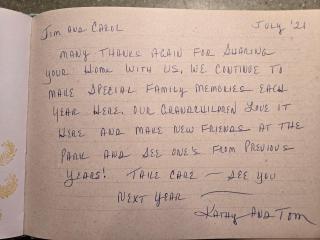 Jim and Carol July '21
Many thanks again for sharing
your home with us, we continue to
make special family memories each
year here. Our grandchildren love it
here and make new friends at the
park and see one's from previous
years! Take care – see you
next year
Kathy and Tom